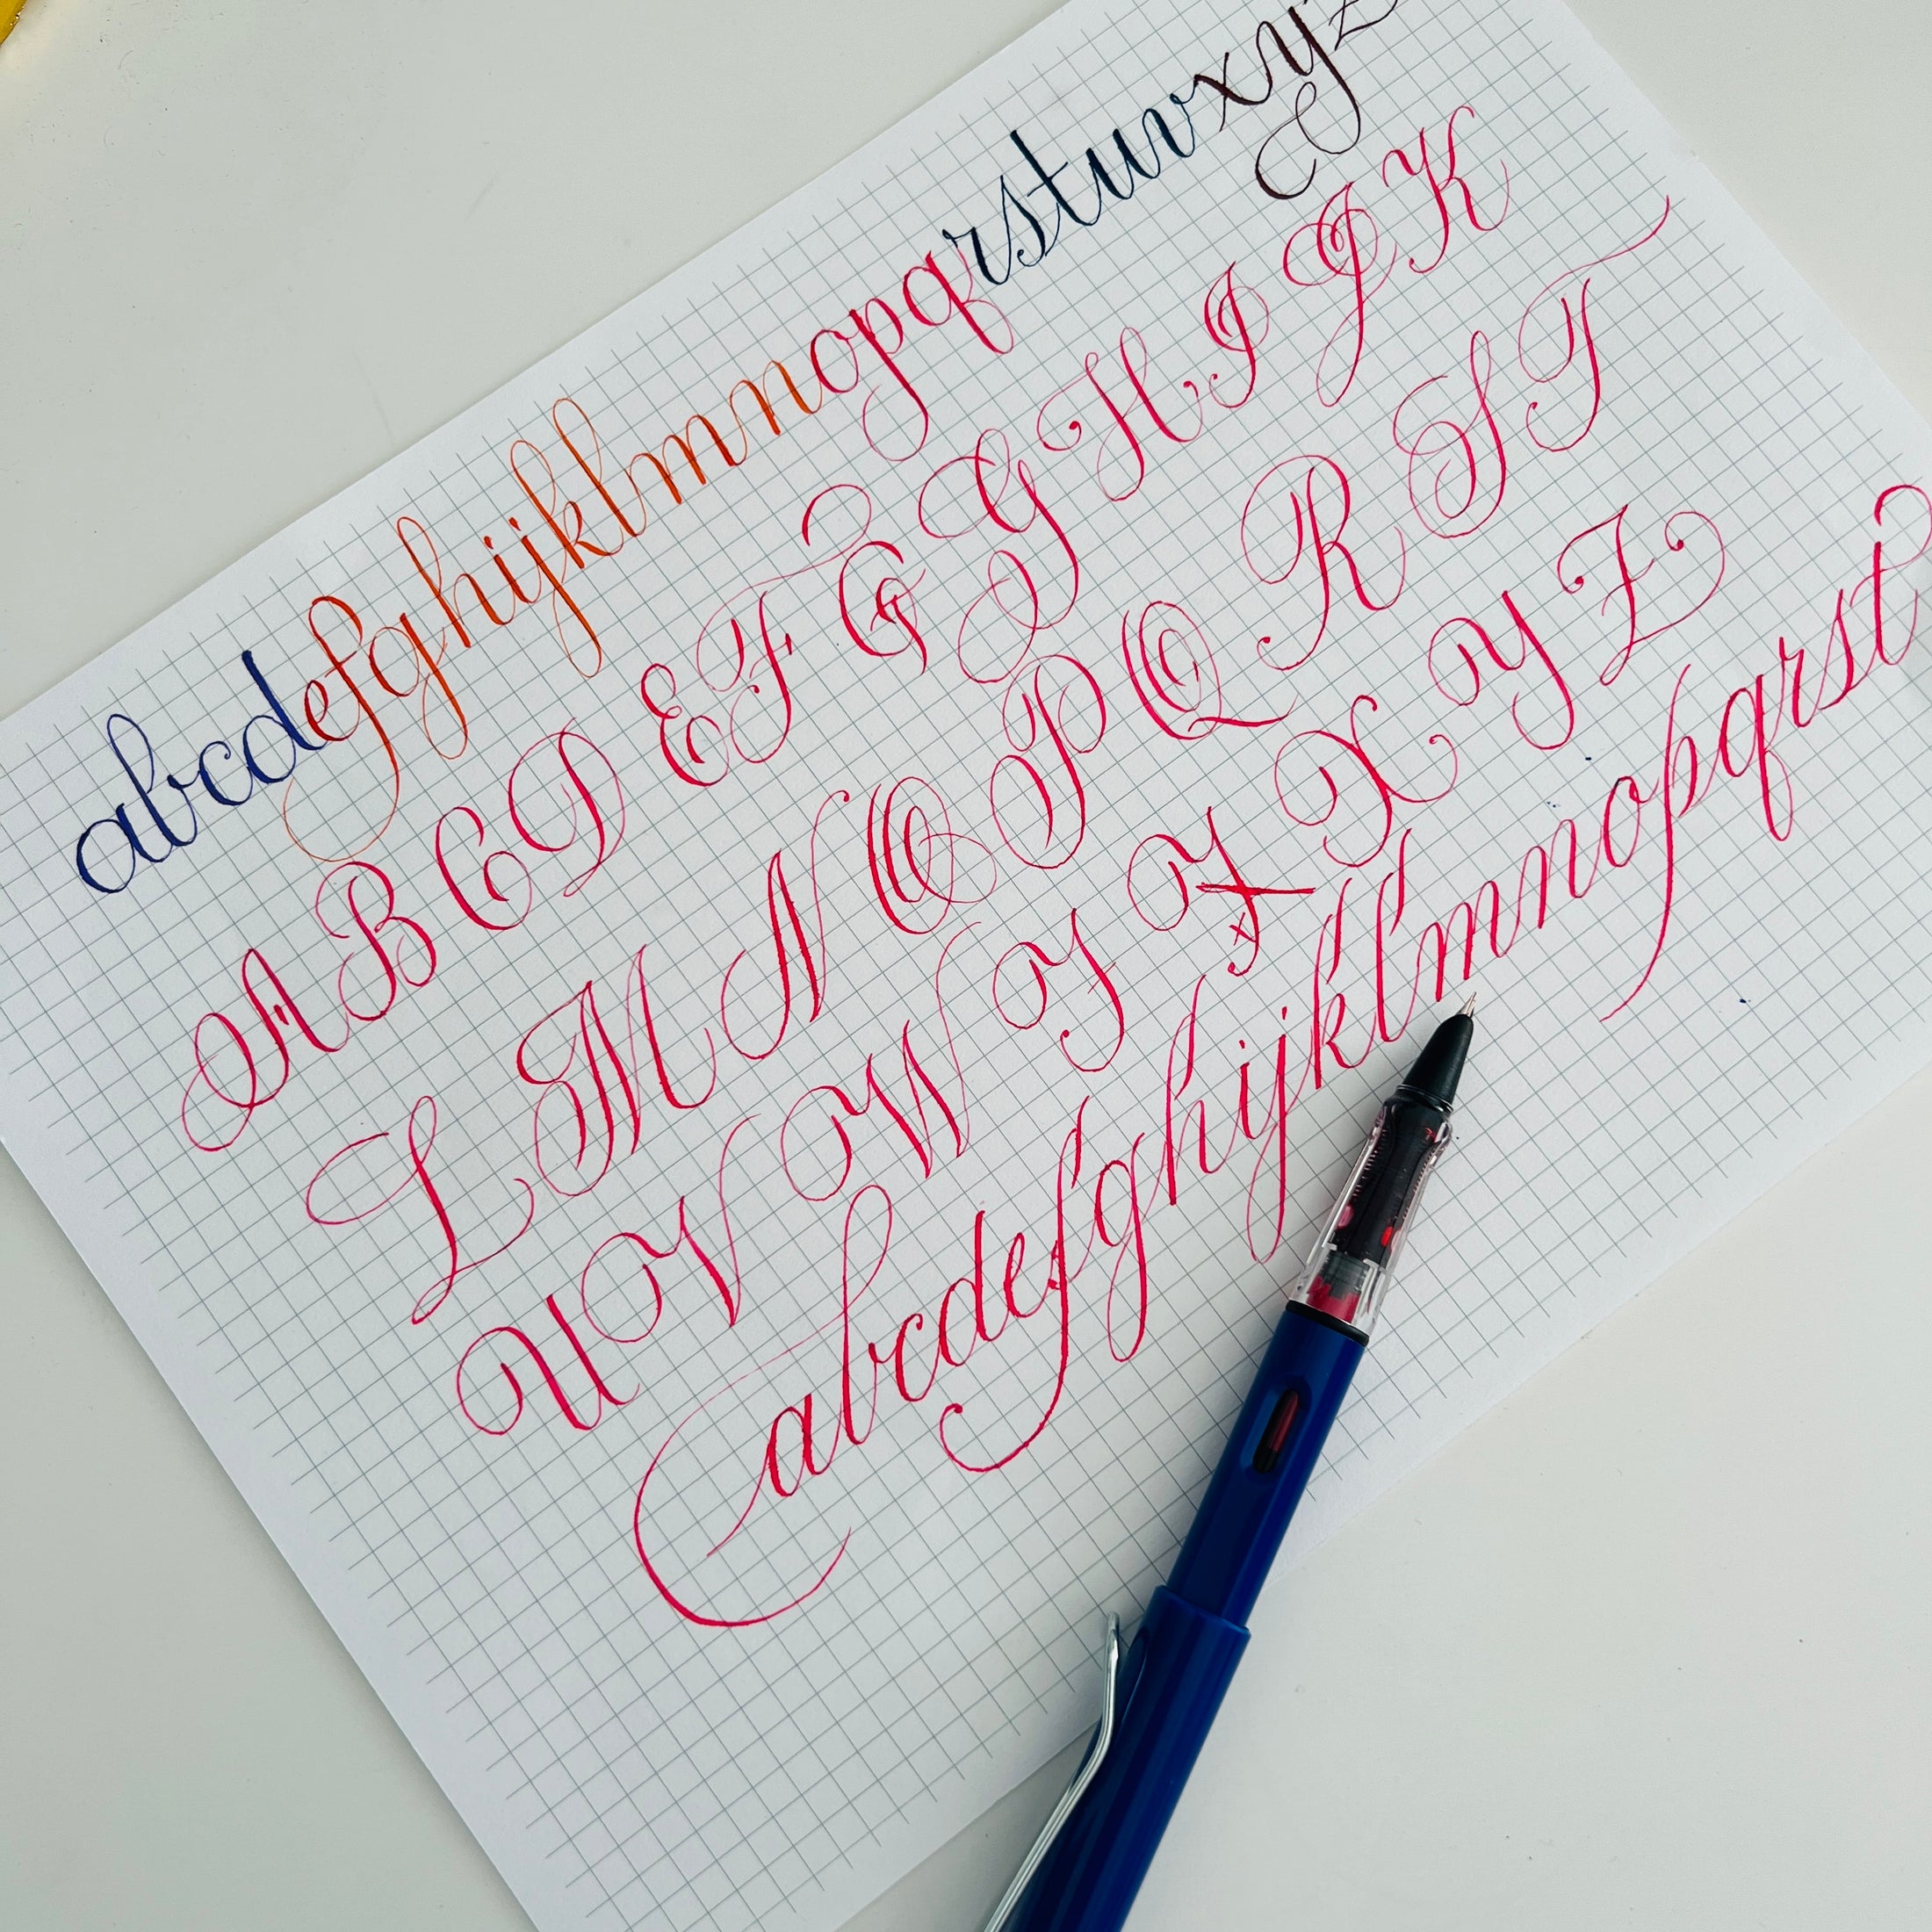 abcdefghijklmnopqrstuvxyz
A B C D E F G G H I J K
L M N O P Q R S T
U V W Y X X Y Z
abcdefghijklmnopqrst